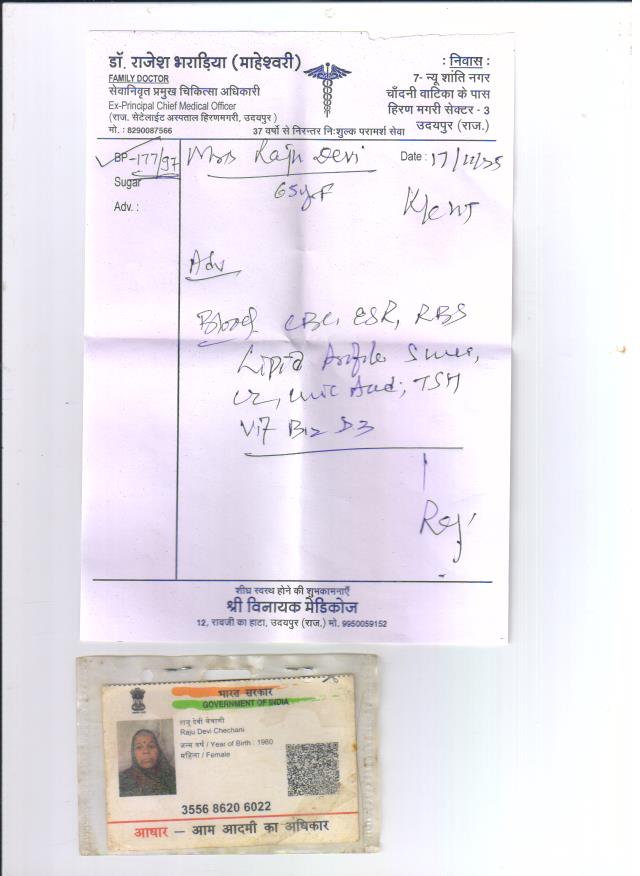 डॉ. राजेश भराड़िया (माहेश्वरी)
FAMILY DOCTOR
सेवानिवृत प्रमुख चिकित्सा अधिकारी
Ex-Principal Chief Medical Officer
(राज. सेटेलाईट अस्पताल हिरणमगरी, उदयपुर)
मो. : 8290087566
37 वर्षो से निरन्तर निःशुल्क परामर्श सेवा
: निवास :
7- न्यू शांति नगर
चाँदनी वाटिका के पास
हिरण मगरी सेक्टर - 3
उदयपुर (राज.)
BP-177/97 Mrs Raju Devi Date : 17/11/25
Sugar 65y F
Adv. :
Adv
Blood CBC, ESR, RBS
Lipid Profile
Uric Acid, TSH
Vit B12 D3
शीघ्र स्वस्थ होने की शुभकामनाएँ
श्री विनायक मेडिकोज
12, रावजी का हाटा, उदयपुर (राज.) मो. 9950059152
भारत सरकार
GOVERNMENT OF INDIA
राजू देवी चेचाणी
Raju Devi Chechani
जन्म वर्ष / Year of Birth : 1960
महिला / Female
3556 8620 6022
आधार — आम आदमी का अधिकार